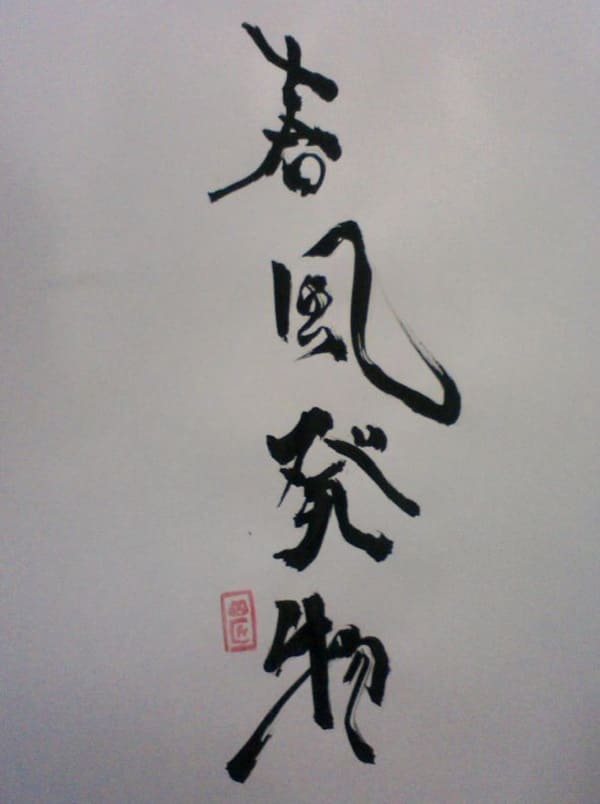 春風発物